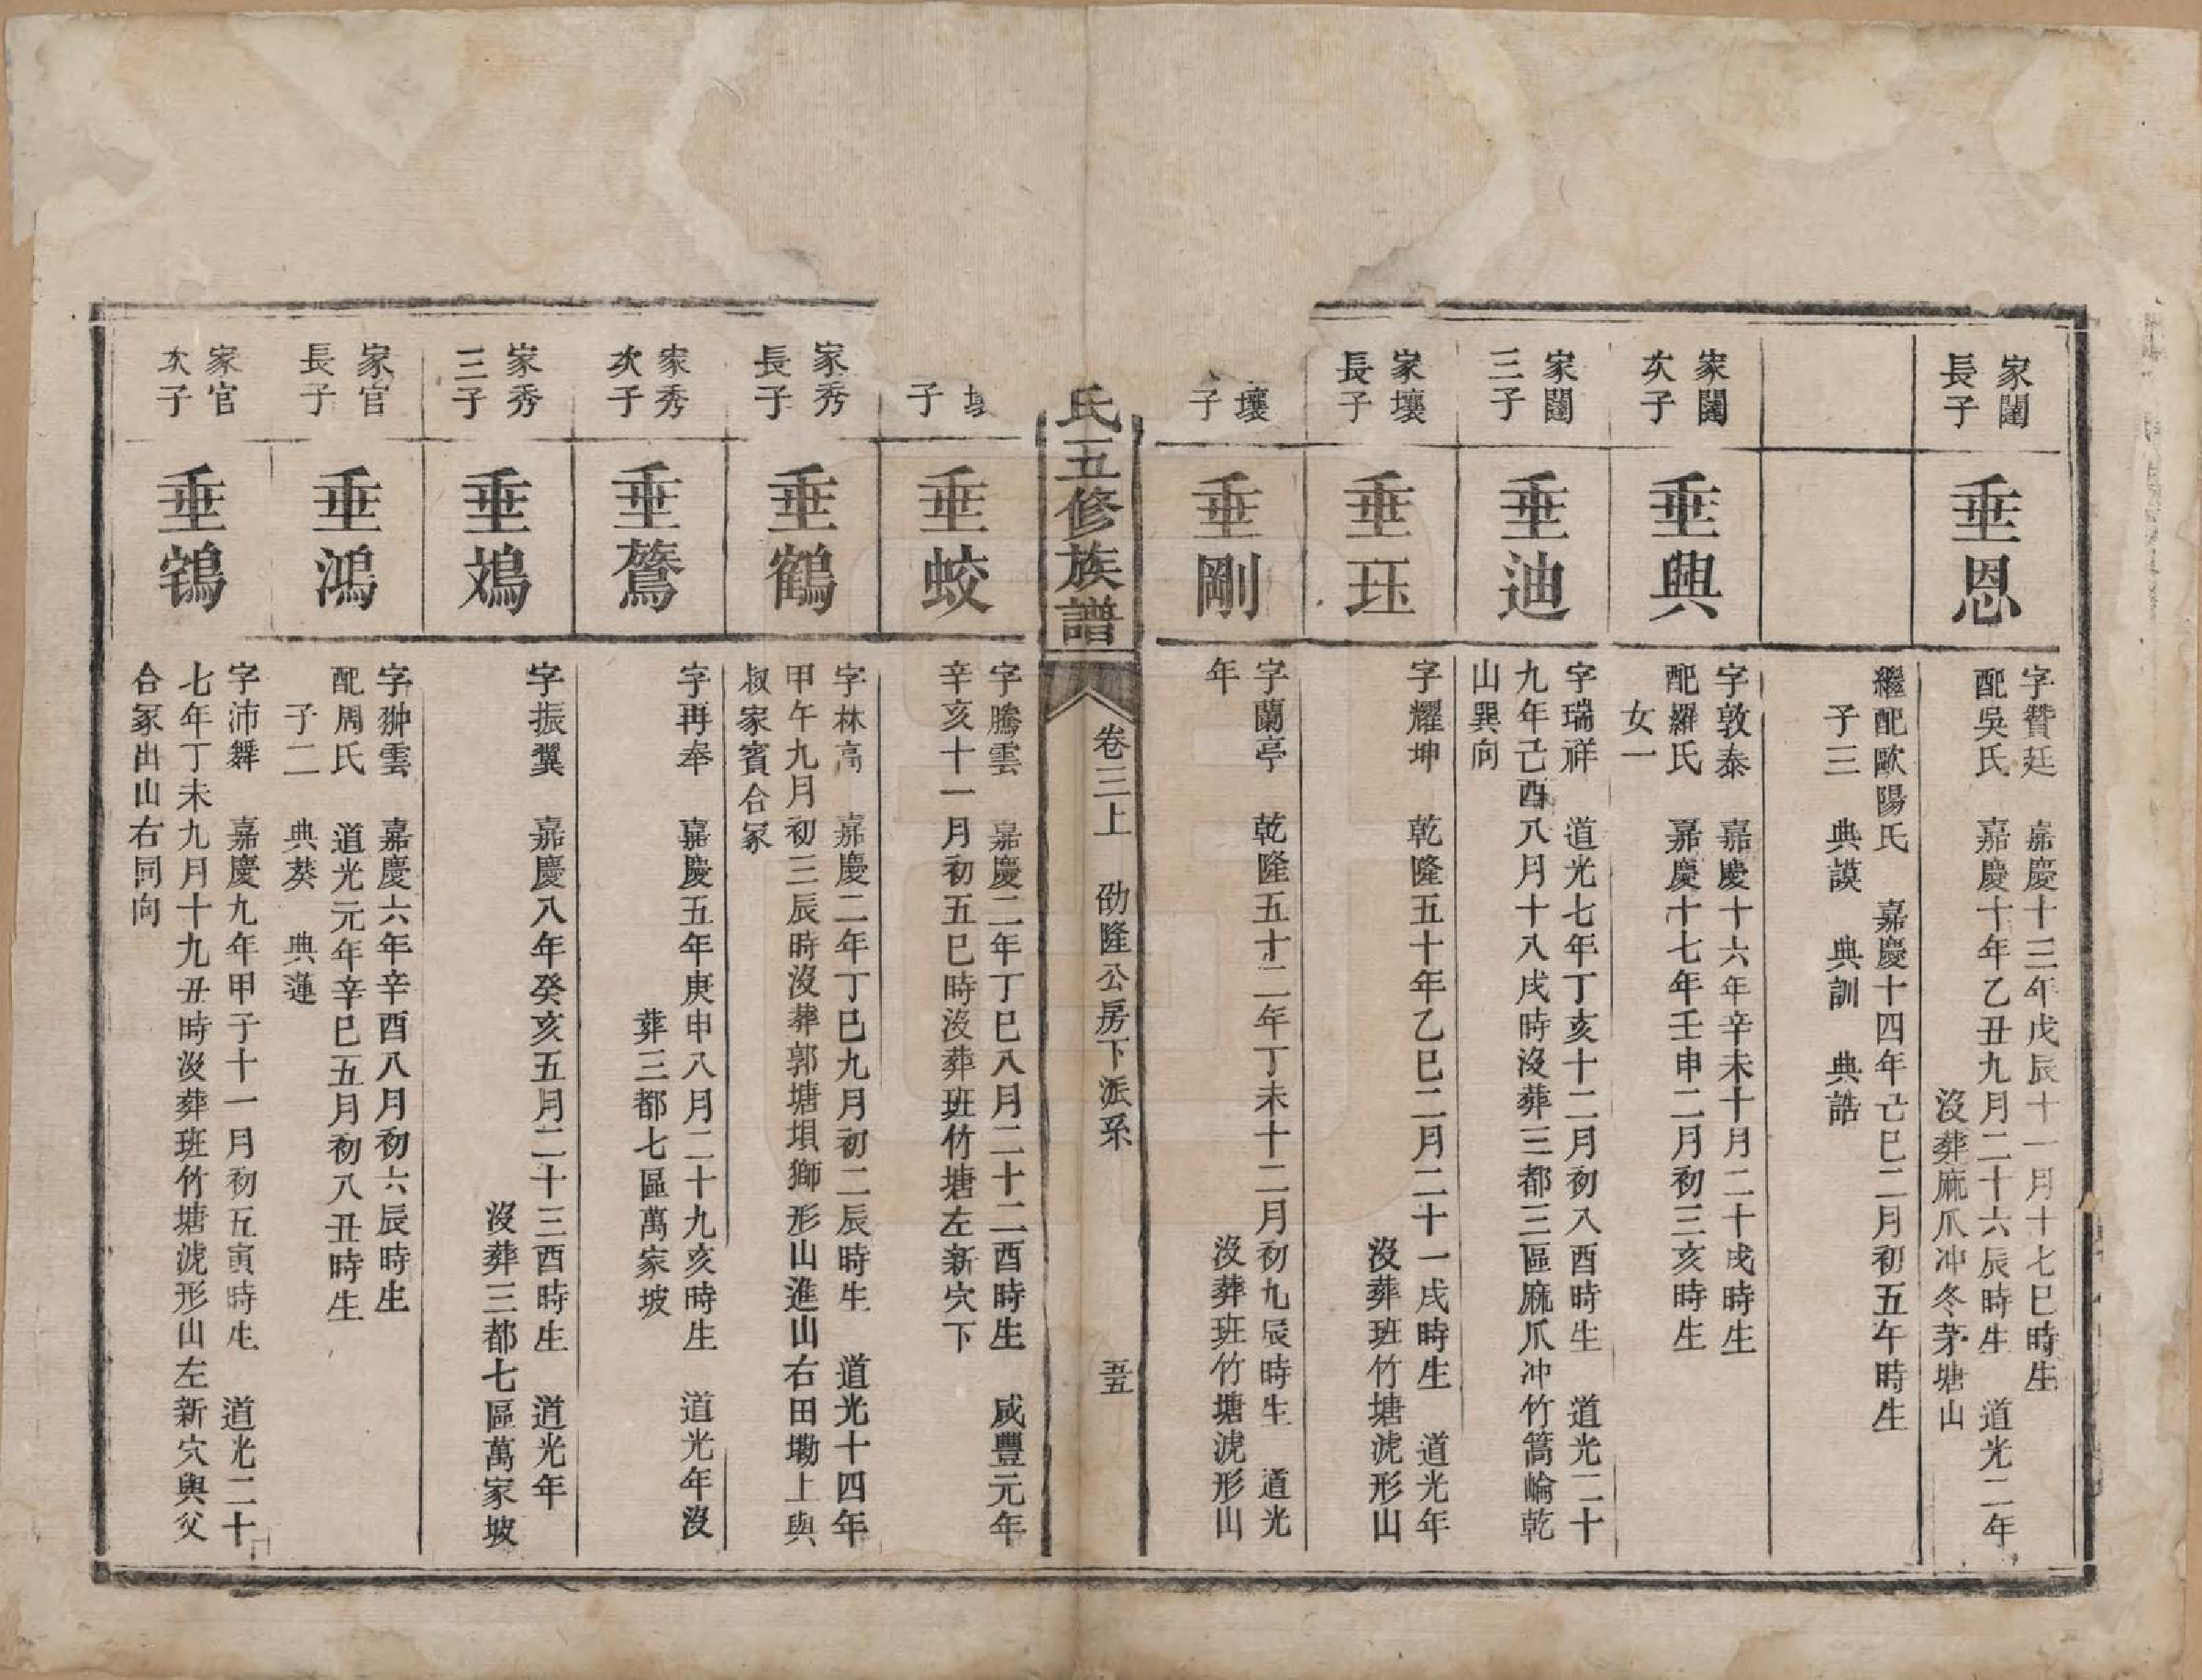 家闥
長子
垂恩
字贊廷　嘉慶十三年戊辰十一月十七巳時生
配吳氏　嘉慶十年乙丑九月二十六辰時生　道光二年
沒葬麻爪冲冬茅塘山
繼配歐陽氏　嘉慶十四年己巳二月初五午時生
子三　典謨　典訓　典誥
家闥
次子
垂興
字敦泰　嘉慶十六年辛未十月二十戌時生
配羅氏　嘉慶十七年壬申二月初三亥時生
女一
家闥
三子
垂迪
字瑞祥　道光七年丁亥十二月初入酉時生　道光二十
九年己酉八月十八戌時沒葬三都三區麻爪冲竹篙崘乾
山巽向
家壤
長子
垂珏
字耀坤　乾隆五十年乙巳二月二十一戌時生　道光年
沒葬班竹塘淲形山
壤
子
垂剛
字蘭亭　乾隆五十二年丁未十二月初九辰時生　道光
年
沒葬班竹塘淲形山
氏五修族譜
卷三上　劭隆公房下派系
五五
子
垂蛟
字騰雲　嘉慶二年丁巳八月二十二酉時生　咸豐元年
辛亥十一月初五巳時沒葬班竹塘左新穴下
家秀
長子
垂鶴
字林高　嘉慶二年丁巳九月初二辰時生　道光十四年
甲午九月初三辰時沒葬郭塘垻獅形山進山右田墈上與
叔家賓合冢
家秀
次子
垂鶩
字再奉　嘉慶五年庚申八月二十九亥時生　道光年沒
葬三都七區萬家坡
家秀
三子
垂鴆
字振翼　嘉慶八年癸亥五月二十三酉時生　道光年
沒葬三都七區萬家坡
家官
長子
垂鴻
字翀雲　嘉慶六年辛酉八月初六辰時生
配周氏　道光元年辛巳五月初八丑時生
子二　典葵　典蓮
家官
次子
垂鵭
字沛舞　嘉慶九年甲子十一月初五寅時生　道光二十
七年丁未九月十九丑時沒葬班竹塘淲形山左新穴與父
合冢出山右同向